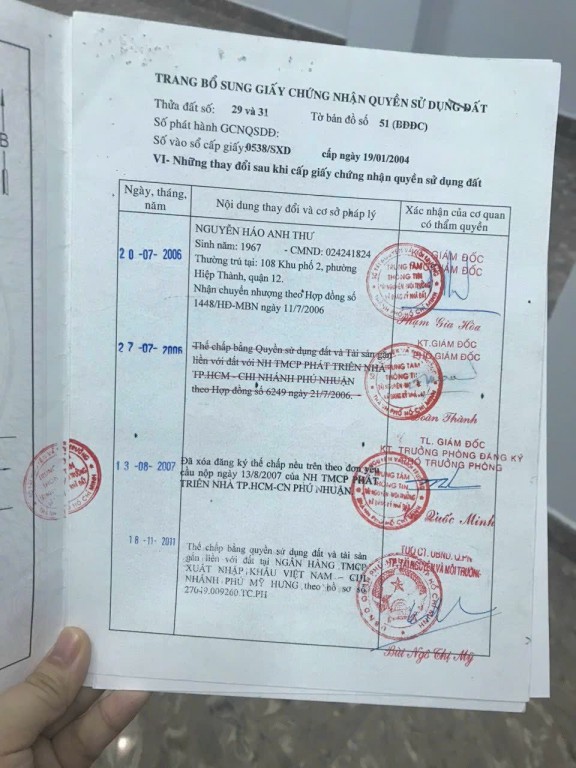 B
TRANG BỔ SUNG GIẤY CHỨNG NHẬN QUYỀN SỬ DỤNG ĐẤT
Thửa đất số: 29 và 31 Tờ bản đồ số 51 (BĐĐC)
Số phát hành GCNQSDĐ:
Số vào sổ cấp giấy: 0538/SXD cấp ngày 19/01/2004
VI- Những thay đổi sau khi cấp giấy chứng nhận quyền sử dụng đất
Ngày, tháng, năm
Nội dung thay đổi và cơ sở pháp lý
Xác nhận của cơ quan có thẩm quyền
20-07-2006
NGUYỄN HÁO ANH THƯ
Sinh năm: 1967 - CMND: 024241824
Thường trú tại: 108 Khu phố 2, phường
Hiệp Thành, quận 12.
Nhận chuyển nhượng theo Hợp đồng số
1448/HĐ-MBN ngày 11/7/2006
GIÁM ĐỐC
GIÁM ĐỐC
TRUNG TÂM
THÔNG TIN
Phạm Gia Hòa
27-07-2006
Thế chấp bằng Quyền sử dụng đất và Tài sản gắn
liền với đất với NH TMCP PHÁT TRIỂN NHÀ
TP.HCM - CHI NHÁNH PHÚ NHUẬN
theo Hợp đồng số 6249 ngày 21/7/2006.
KT.GIÁM ĐỐC
GIÁM ĐỐC
TRUNG TÂM
THÔNG TIN
Đoàn Thành
13-08-2007
Đã xóa đăng ký thế chấp nêu trên theo đơn yêu
cầu nộp ngày 13/8/2007 của NH TMCP PHÁT
TRIỂN NHÀ TP.HCM-CN PHÚ NHUẬN
TL. GIÁM ĐỐC
KT. TRƯỞNG PHÒNG ĐĂNG KÝ
PHÓ TRƯỞNG PHÒNG
TRUNG TÂM
THÔNG TIN
Quốc Minh
18-11-2011
Thế chấp bằng quyền sử dụng đất và tài sản
gắn liền với đất tại NGÂN HÀNG TMCP
XUẤT NHẬP KHẨU VIỆT NAM – CHI
NHÁNH PHÚ MỸ HƯNG theo hồ sơ số
27649.009260.TC.PH
TUQ CT. UBND. Q.PN
TP. TÀI NGUYÊN VÀ MÔI TRƯỜNG
Bùi Ngô Thị Mỹ